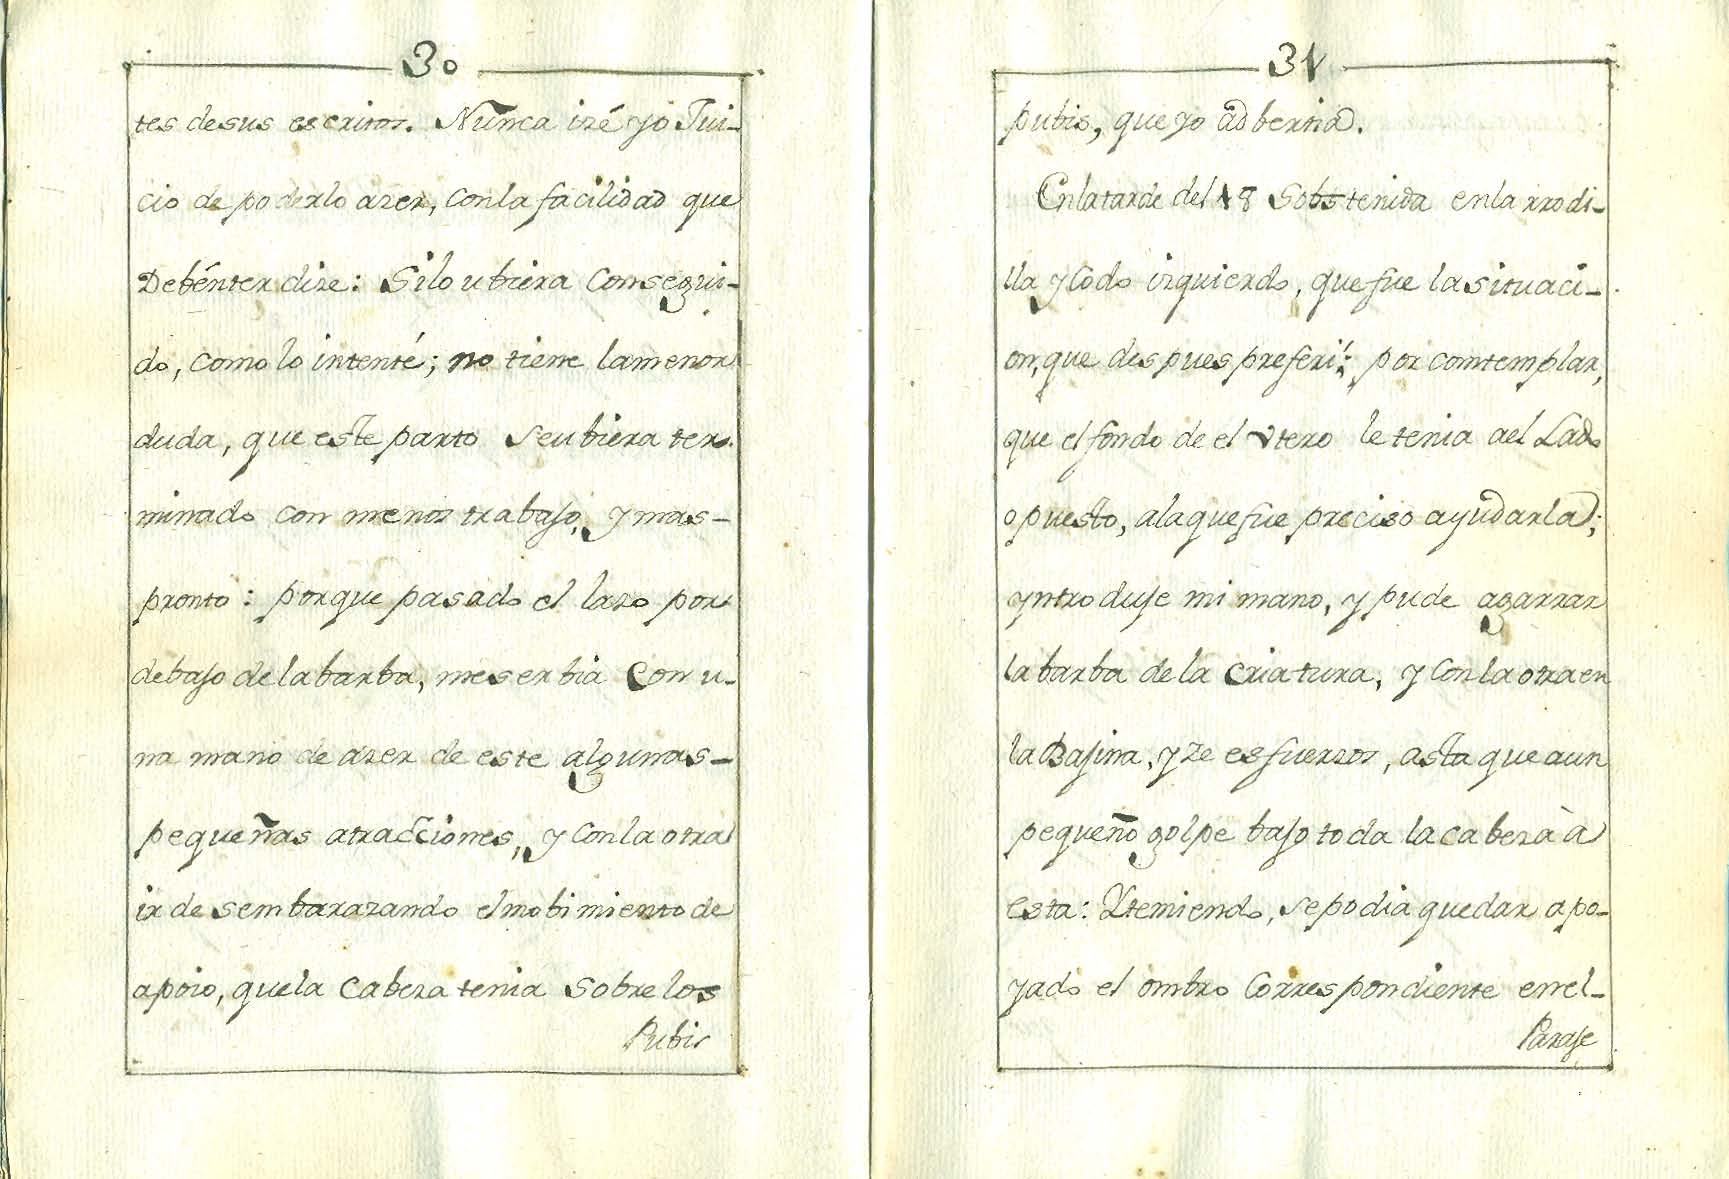 30
tes desus escritos. Nunca iré yo Jui-
cio de poderlo azer, conla facilidad que
Debénter dize: Silo ubiera Consegui-
do, como lo intenté; no tiene lamenor
duda, que este parto seubiera ter-
minado con menos trabajo, y mas-
pronto: porque pasado el lazo por
debajo dela barba, meserbia con u-
na mano de azer de este algunas-
pequeñas atracciones, y conla otra
ir desembarazando elmobimiento de
apoio, quela cabeza tenia sobre los
Pubis
31
pubis, que yo adbertia.
Enlatarde del 18 Sobstenida enla rrodi-
lla y Codo izquierdo, quefue la situaci-
on, que despues preferi; por comtemplar,
que el fondo de el vtero le tenia ael Lado
opuesto, alaquefue preciso ayudarla;
yntroduje mi mano, y pude agarrar
la barba de la criatura, y conla otra en
la Bajina, yze esfuerzos, asta que aun
pequeño golpe bajo toda la cabeza à
esta: Ytemiendo, sepodia quedar apo-
yado el ombro Correspondiente enel-
Paraje